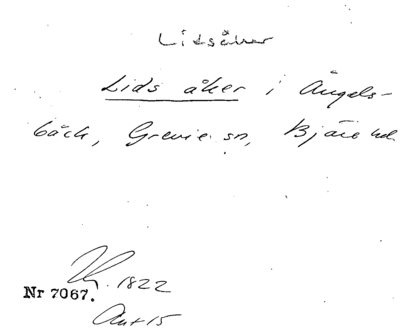 Lidsåker
Lids åker i Ängels-
bäck, Grevie sn, Bjäre hd.
1822
Nr 7067.
Ant 15